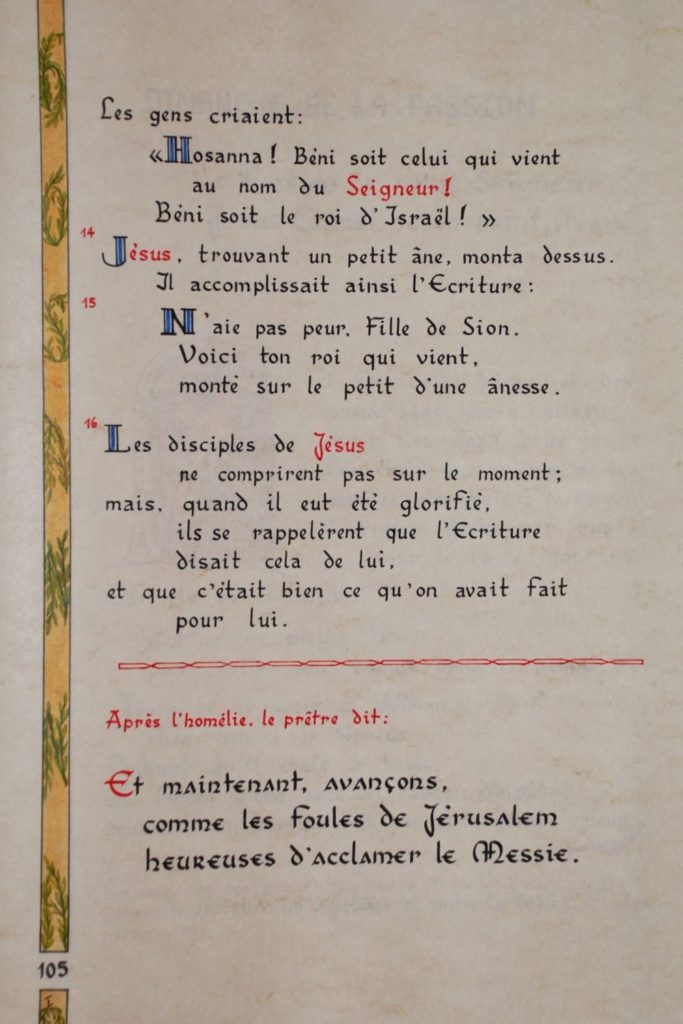 Les gens criaient:
«Hosanna! Béni soit celui qui vient
au nom du Seigneur!
Béni soit le roi d'Israël! »
14
Jésus, trouvant un petit âne, monta dessus.
Il accomplissait ainsi l'Ecriture:
15
N'aie pas peur, Fille de Sion.
Voici ton roi qui vient,
monté sur le petit d'une ânesse.
16
Les disciples de Jésus
ne comprirent pas sur le moment;
mais, quand il eut été glorifié,
ils se rappelèrent que l'Ecriture
disait cela de lui,
et que c'était bien ce qu'on avait fait
pour lui.
Après l'homélie, le prêtre dit:
Et maintenant, avançons,
comme les foules de Jérusalem
heureuses d'acclamer le Messie.
105